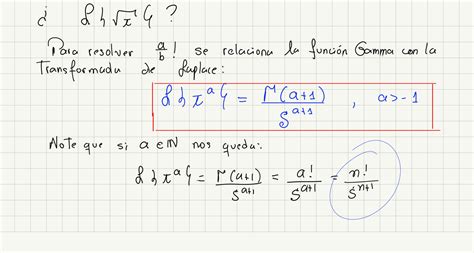 ¿ ℒ{√x}?
Para resolver a/b! se relaciona la función Gamma con la
Transformada de Laplace:
ℒ{x^a} = Γ(a+1)/S^(a+1) , a>-1
Note que si a∈ℕ nos queda:
ℒ{x^a} = Γ(a+1)/S^(a+1) = a!/S^(a+1) = n!/S^(n+1)